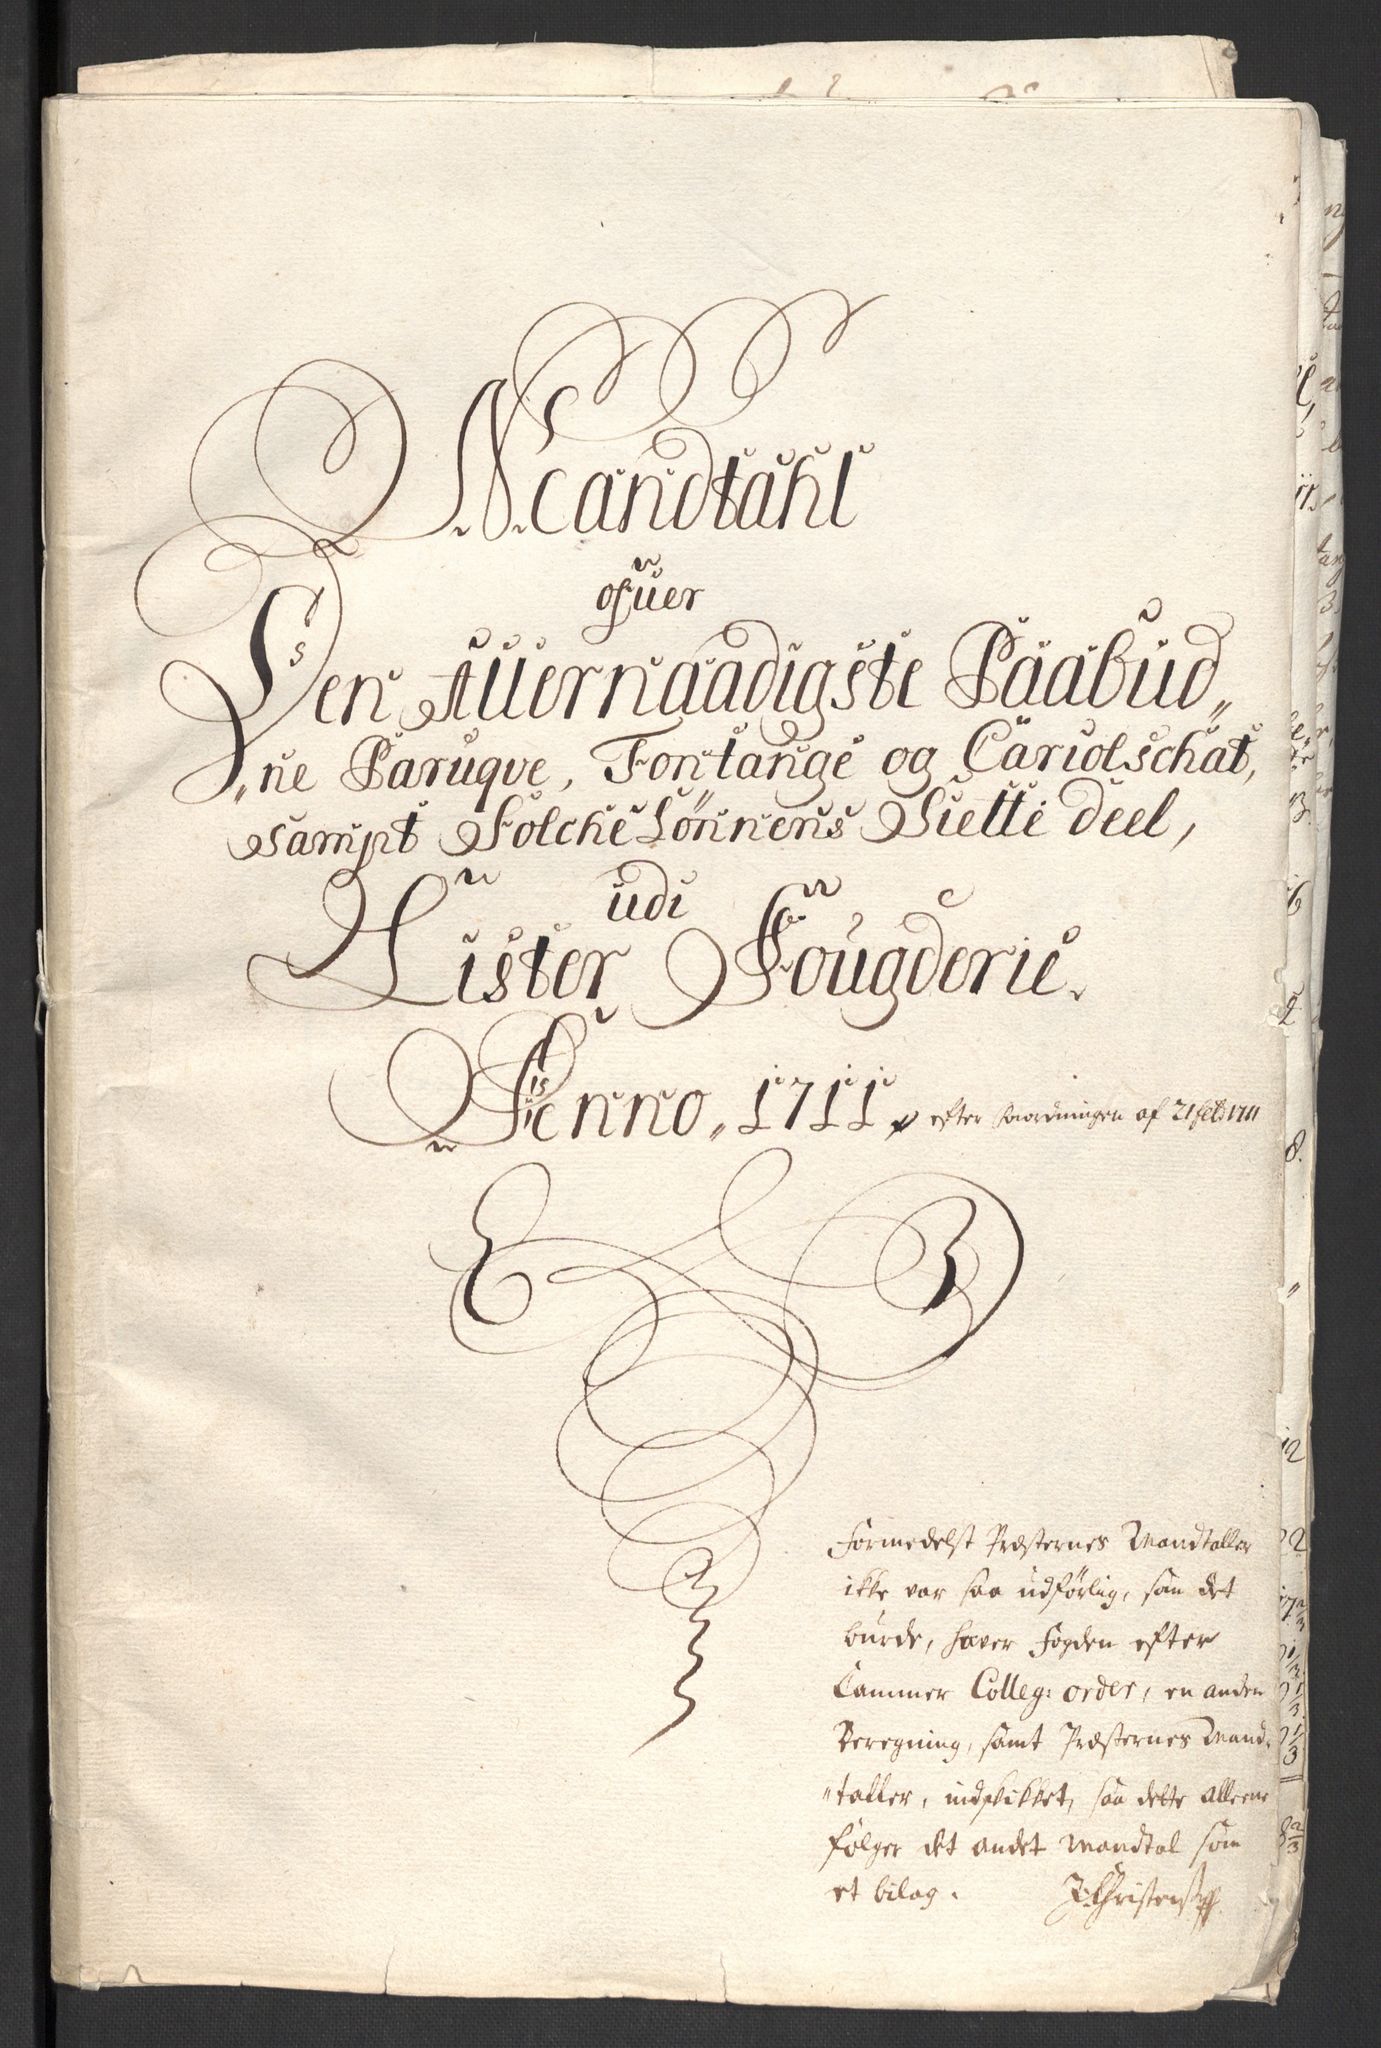 Mandtahl
ofuer
Den Allernaadigste Paabud„
„ne Paruqve, Fontange og Cariolschat,
sampt Folche Lønnens Siette deel,
udi
Lister Fougderie.
Anno, 1711, efter forordningen af 21 feb: 1711
Formedelst Præsternes Mandtaller
ikke var saa udførlig, som det
burde, haver fogden efter
Cammer Colleg: order, en anden
Beregning, samt Præsternes Mand„
„taller, indskikket, saa dette alleene
følger det andet Mandtal som
et bilag. J: Christens